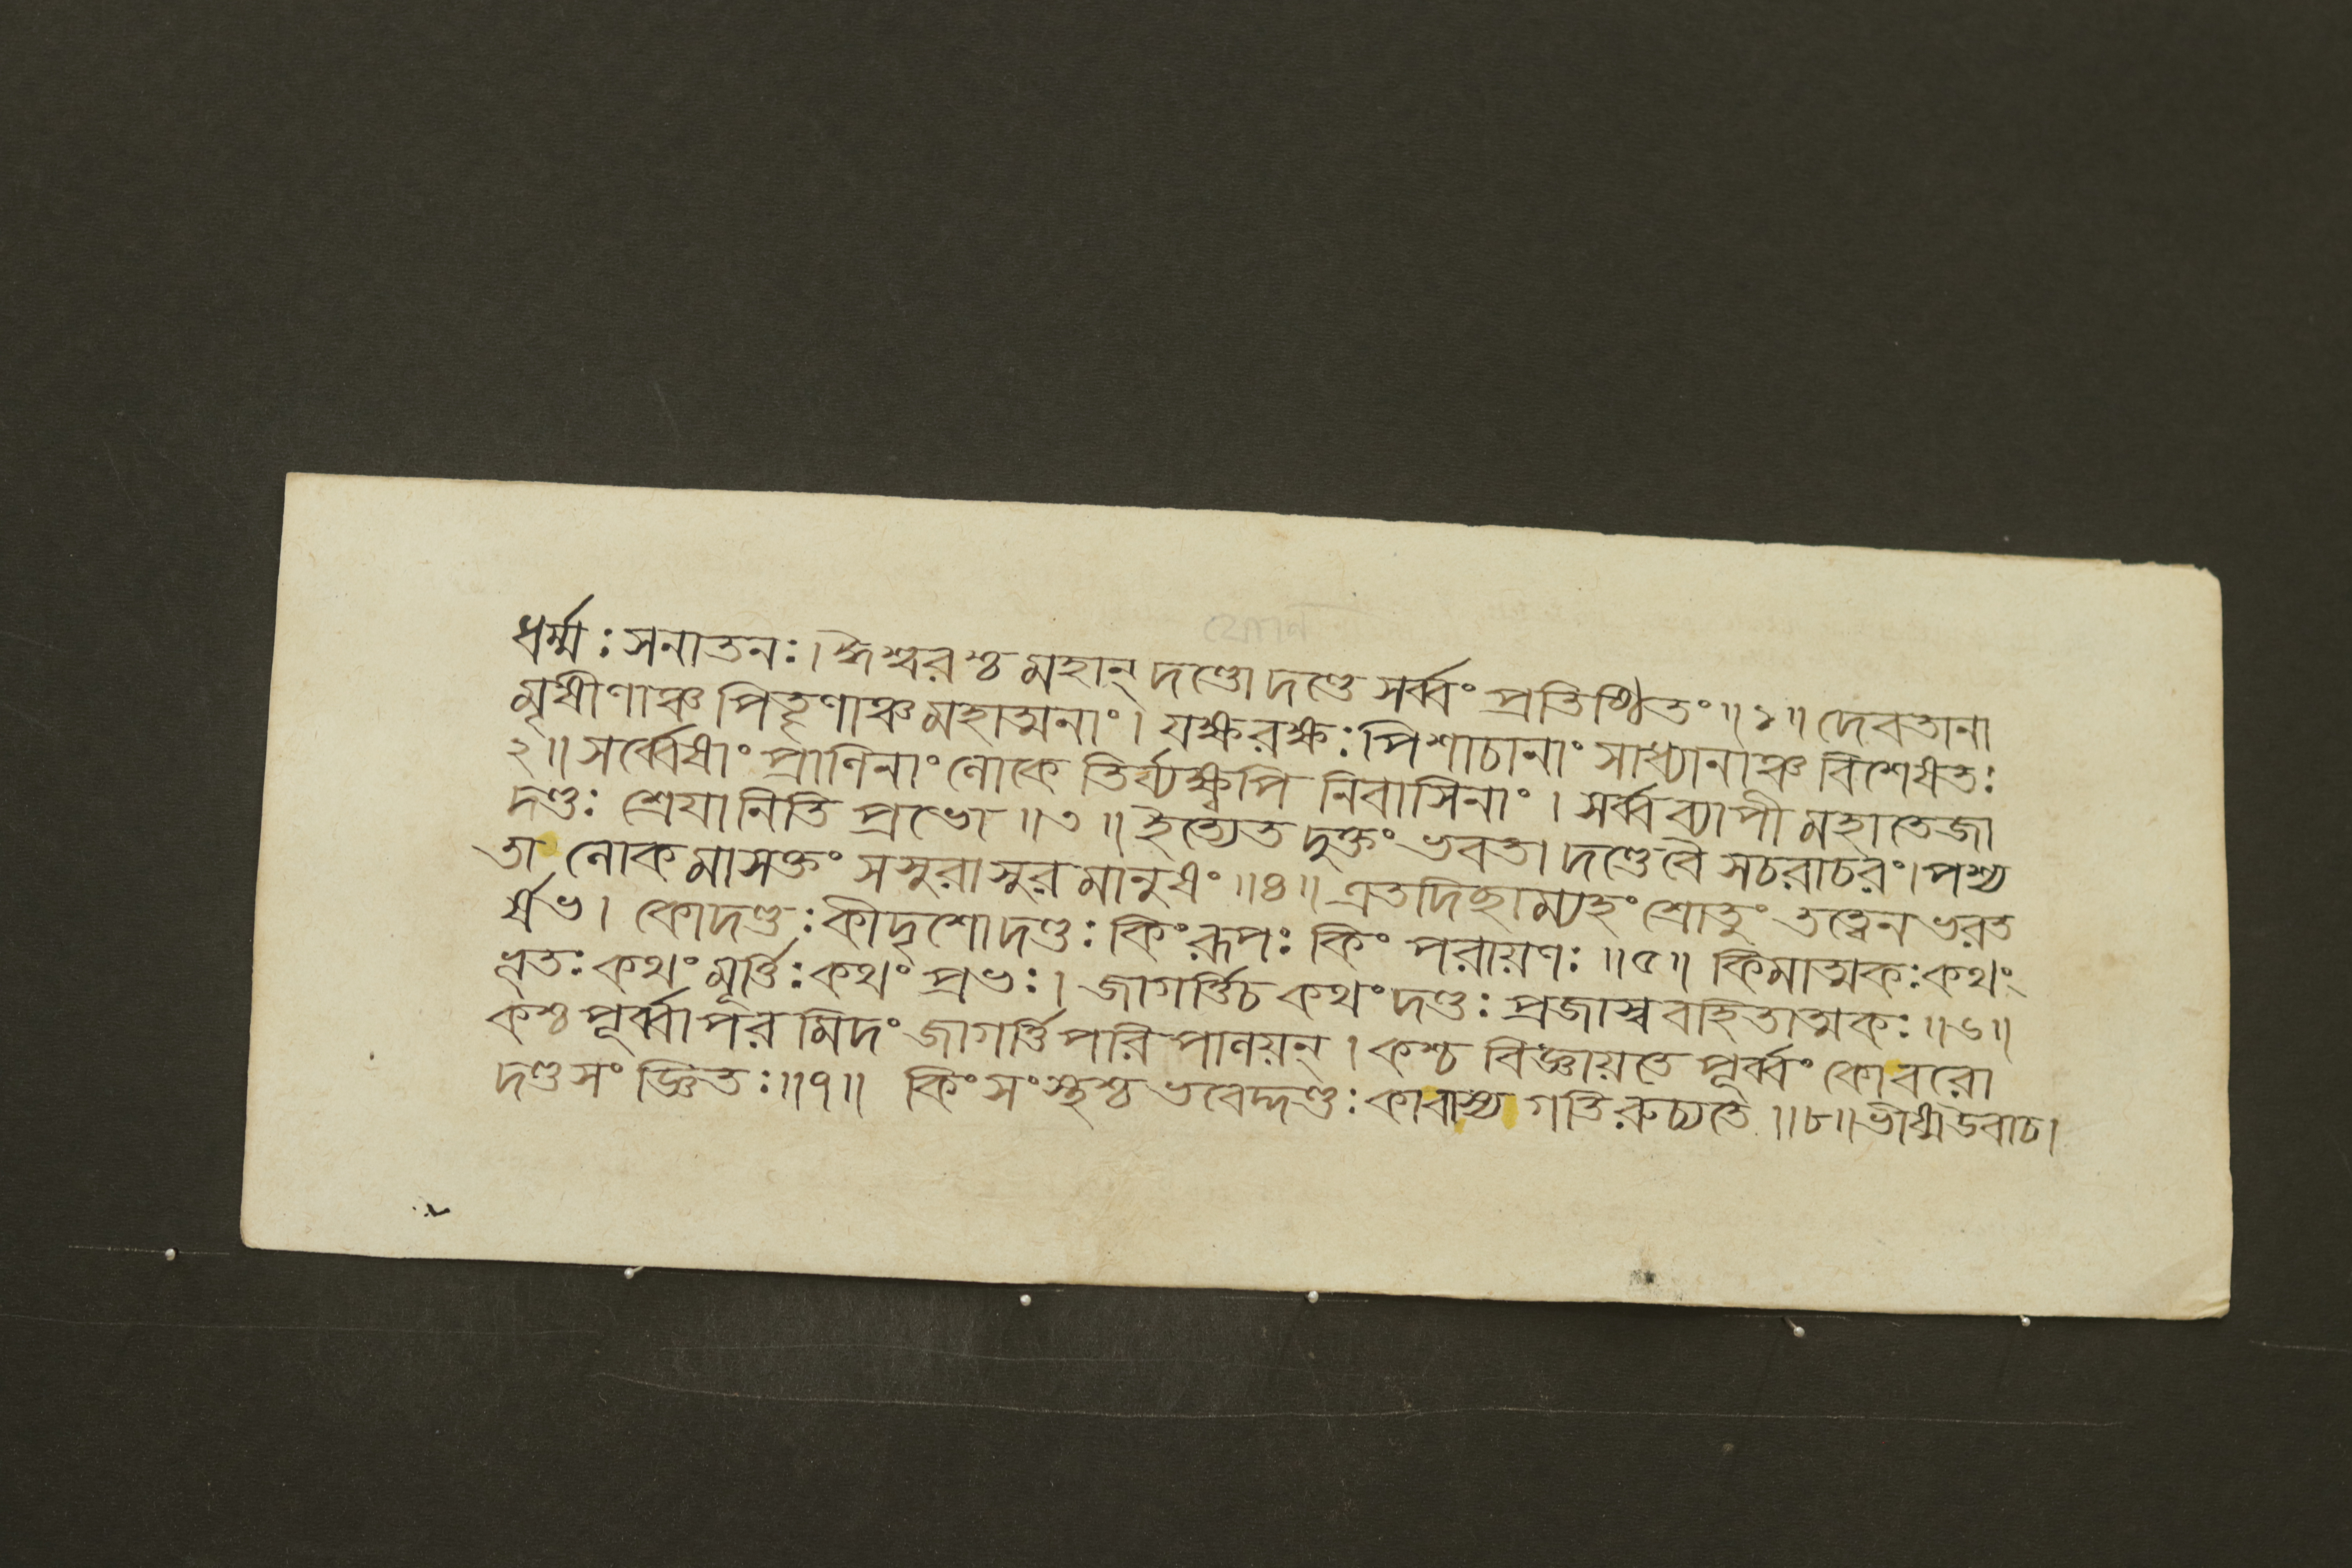 ধর্ম্মঃ সনাতনঃ। ঈশ্বরশ্চ মহান্ দণ্ডো দণ্ডে সর্ব্বং প্রতিষ্ঠিতং ॥১॥ দেবতানা
মৃষীণাঞ্চ পিতৄণাঞ্চ মহাত্মনাং। যক্ষরক্ষঃ পিশাচানাং সাধ্যানাঞ্চ বিশেষতঃ
২॥ সর্ব্বেষাং প্রাণিনাং লোকে তির্য্যক্ষ্বপি নিবাসিনাং। সর্ব্বব্যাপী মহাতেজা
দণ্ডঃ শ্রেয়ানিতি প্রভো ॥৩॥ ইত্যেত দুক্তং ভবতা দণ্ডে বৈ সচরাচরং। পশ্য
তা লোকমাসক্তং সসুরাসুর মানুষং ॥৪॥ এতদিচ্ছাম্যহং শ্রোতুং তত্ত্বেন ভরত
র্ষভ। কো দণ্ডঃ কীদৃশো দণ্ডঃ কিং রূপঃ কিং পরায়ণঃ ॥৫॥ কিমাত্মকঃ কথং
ভূতঃ কথং মূর্ত্তিঃ কথং প্রভঃ। জাগর্ত্তি চ কথং দণ্ডঃ প্রজাস্ববহিতাত্মকঃ ॥৬॥
কশ্চ পূর্ব্বাপর মিদং জাগর্ত্তি পরিপালয়ন্। কশ্চ বিজ্ঞায়তে পূর্ব্বং কোবরো
দণ্ডসংজ্ঞিতঃ ॥৭॥ কিং সংস্থশ্চ ভবেদ্দণ্ডঃ কাবাস্য গতিরুচ্যতে ॥৮॥ ভীষ্ম উবাচ।